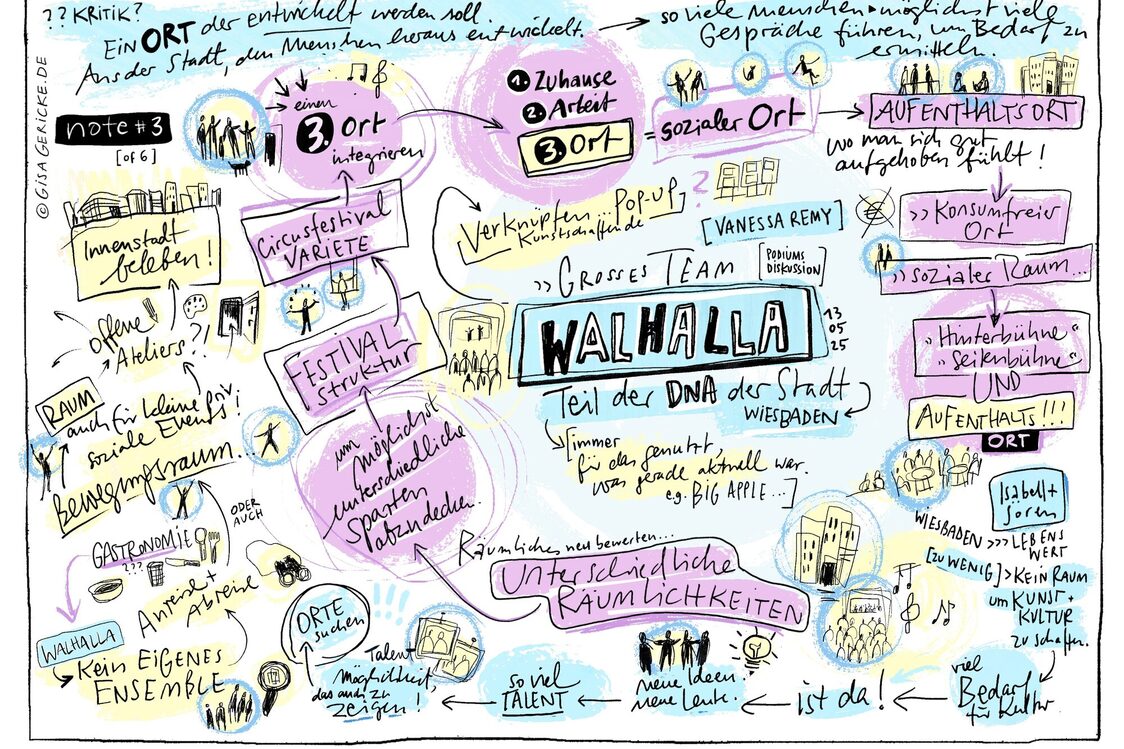 ?? KRITIK?
EIN ORT der entwickelt werden soll.
Aus der Stadt, den Menschen heraus entwickelt.
so viele Menschen + möglichst viele
Gespräche führen, um Bedarf zu
ermitteln.
© GISA GERICKE.DE
note #3
[of 6]
einen
3. Ort
integrieren
1. Zuhause
2. Arbeit
3. Ort
= sozialer Ort
AUFENTHALTSORT
wo man sich gut
aufgehoben fühlt!
>> Konsumfreier
ORT
>> sozialer Raum...
"Hinterbühne"
"Seitenbühne"
UND
AUFENTHALTS!!!
ORT
Innenstadt
beleben!
Circusfestival
VARIETE
Verknüpfen... POP-UP
Kunstschaffende
?
[VANESSA REMY]
>> GROSSES TEAM
[PODIUMS
DISKUSSION]
WALHALLA
13
05
25
Teil der DNA der Stadt
WIESBADEN
[immer
für das genutzt,
was gerade aktuell war.
e.g. BIG APPLE...]
offene
Ateliers?!
FESTIVAL
Struktur
um
möglichst
unterschiedliche
Sparten
abzudecken.
RAUM
auch für kleine priv.
soziale Events!
Bewegungsraum...
ODER
AUCH
GASTRONOMIE
???
Anreise +
Abreise
WALHALLA
Kein EIGENES
ENSEMBLE
Räumliches neu bewerten...
UNTERSCHIEDLICHE
RÄUMLICHKEITEN
Isabell +
Soren
WIESBADEN >>> LEBENS
WERT
[ZU WENIG] > KEIN RAUM
um KUNST +
KULTUR
zu schaffen.
viel
Bedarf
für Kultur
ist da!
neue Ideen.
neue Leute.
so viel
TALENT
Talent
Möglichkeit,
das auch zu
zeigen!
ORTE
suchen